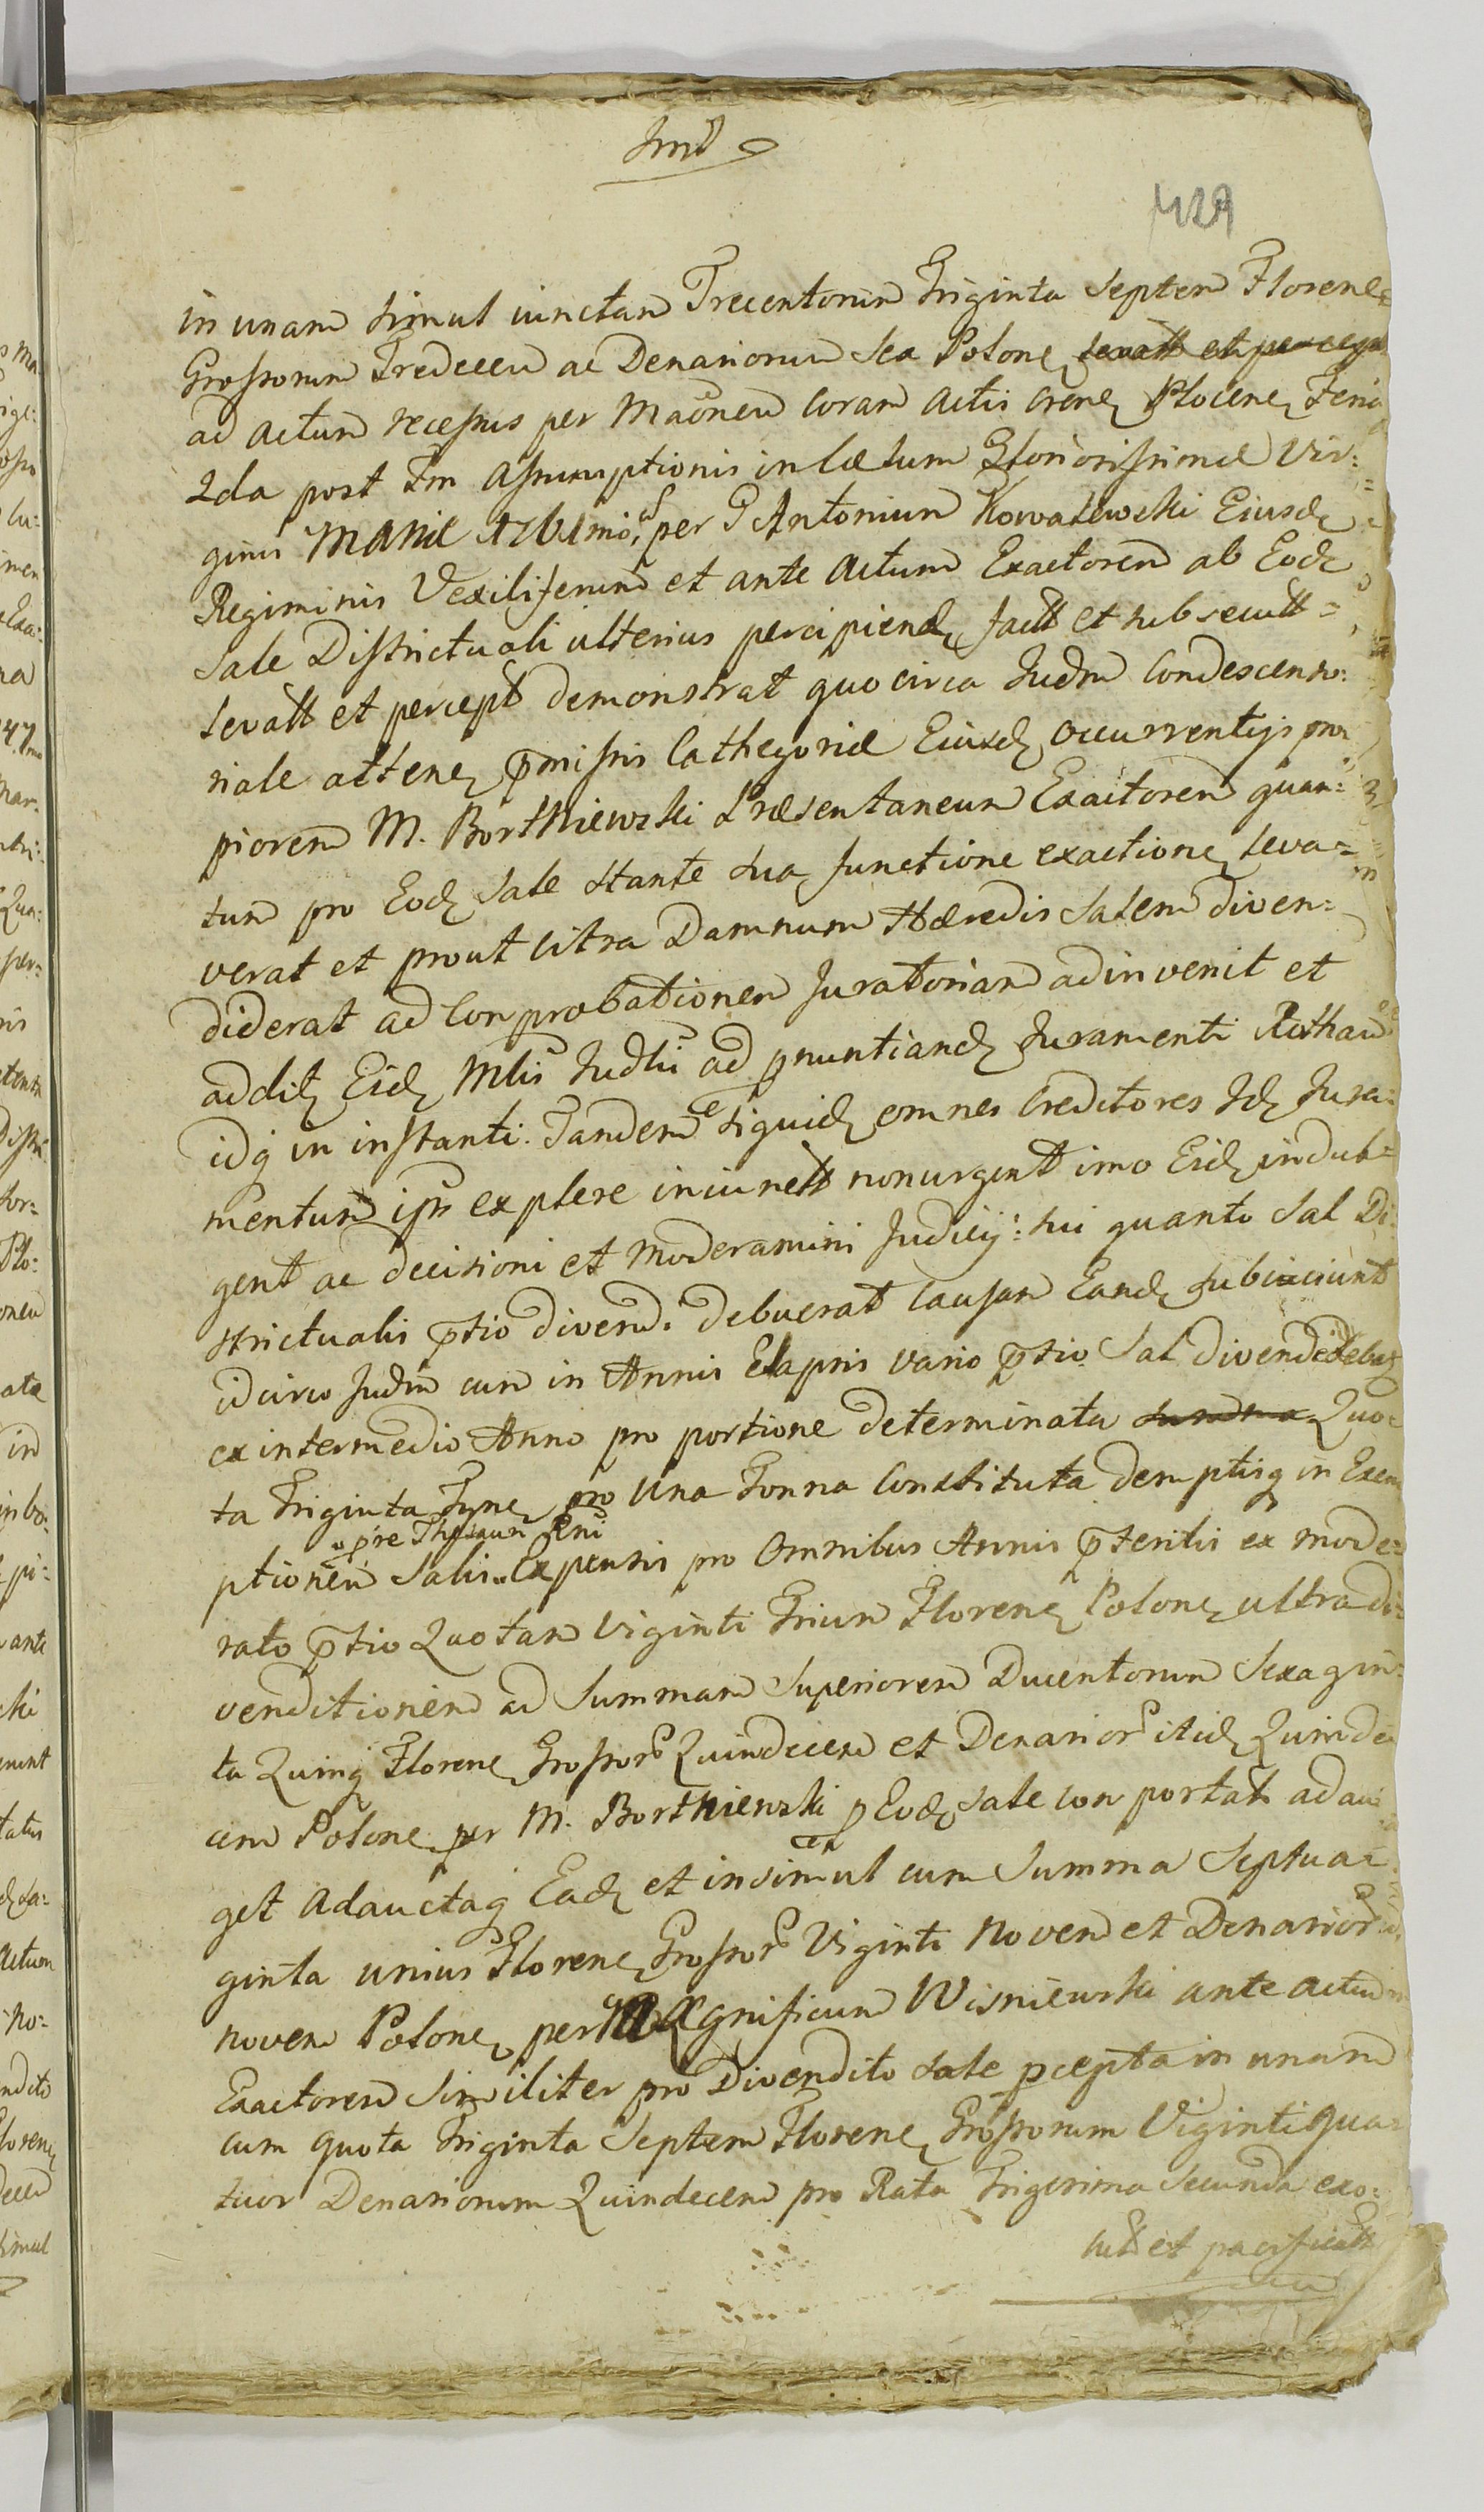 simul
429
in unam simul iunctam Trecentorum Triginta Septem Florenor
Grossorum Tredecem ac Denariorum Sex Polone levatt et percept
ad actum recessus per Magnem coram Actis Crene Plocene Feria
2da post Fm Assumptionis in Cœlum Gloriosissimæ Vir=
ginis MARIÆ 1761mo, per G Antonium Kowalewski Eiusd
Regiminis Vexiliferum et ante actum Exactorem ab Eod
Sale Districtuali ulterius percipiend factt et subsecutt=
levatt et percept demonstrat quocirca Judm Condescenso=
riale attene p̄missis Cathegoriæ Eiusd occurrentijs
piorem M. Borthiewski Præsentaneum Exactorem quan=
tum pro Eod Sale stante sua functione exactione leva=
verat et prout citra Damnum Hæredis Salem diven=
diderat ad Comprobationem Juratoriam adinvenit et
addit Eid Mlis Judlii ad pnuntiand Juramenti Rotham
idq in instanti. Tandem siquid omnes Creditores Id Jura=
mentum ipsi explere iniunctt non urgent imo Eid indul=
gent ac decisioni et moderamini Judicij: sui quanto Sal Di=
strictualis p̄tio divend. debuerat Causam Eand subiiciunt
idcirco Judm cum in Annis Elapsis vario p̄tio Sal divende debat
ex intermedio Anno pro portione determinata summa Quo=
ta Triginta Tyne pro Una Tonna Constituta demptisq in Exem
pre Thesauri Rni
ptionem Salis Expensis pro Omnibus Annis p̄teritis ex mode=
rato p̄tio Quotam Viginti Trium Florene Polone ultra di=
venditionem ad Summam Superiorem Ducentorum Sexagin=
ta Quinq Florene Grossor Quindecem et Denarior itid Quinde
cem Polone per M. Borthiewski p Eod Sale comportat adau
get adauctaq Ead et insimul cum Summa Septua=
ginta unius Florene Grossor Viginti Novem et Denarior
novem Polone per Magnificum Wisniewski ante actum
Exactorem similiter pro Divendito Sale pcepta in unam
cum quota Triginta Septem Florene Grossorum Viginti qua=
tuor Denariorum Quindecem pro Rata Trigesima Secunda exo=
lutt et pacificatt